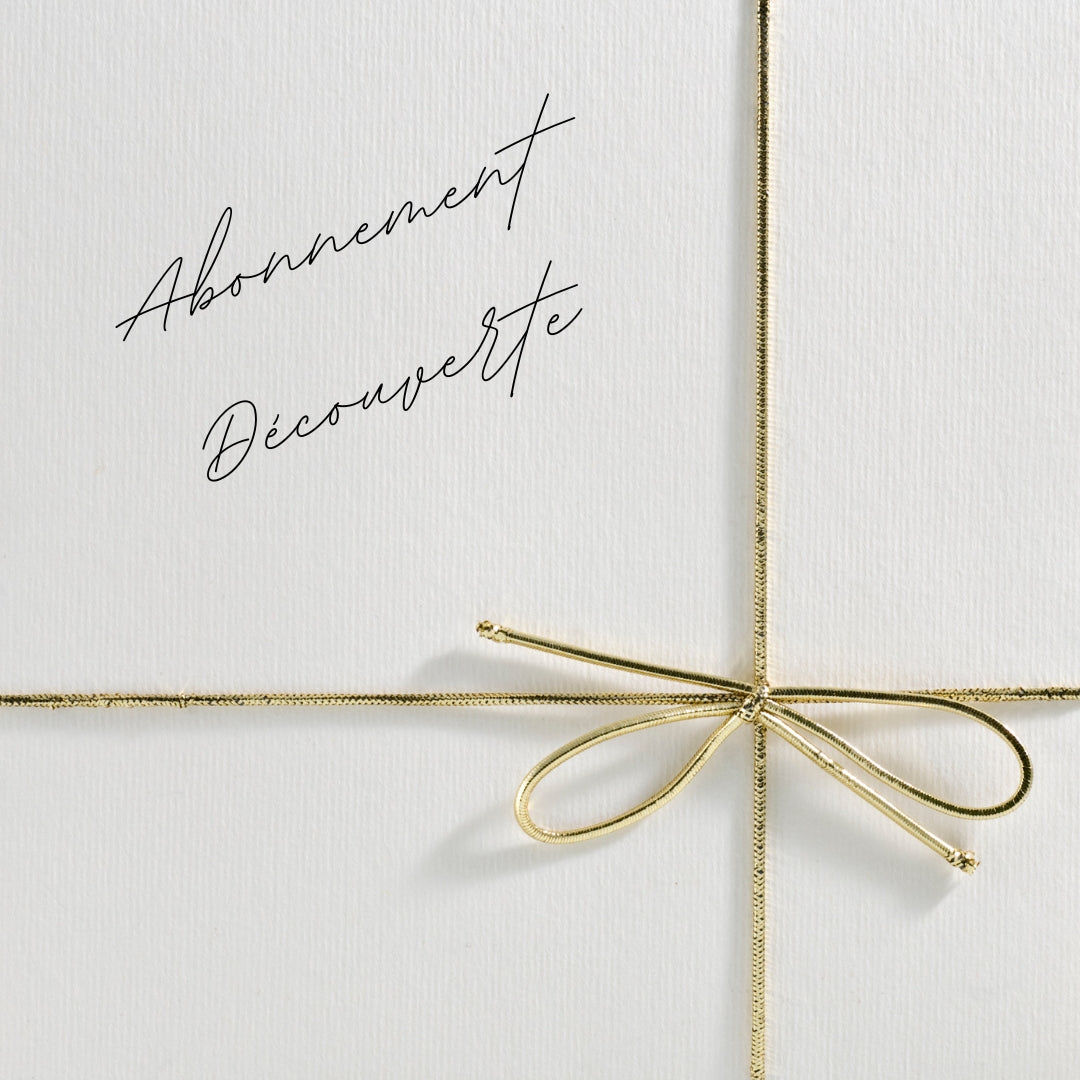 Abonnement
Découverte